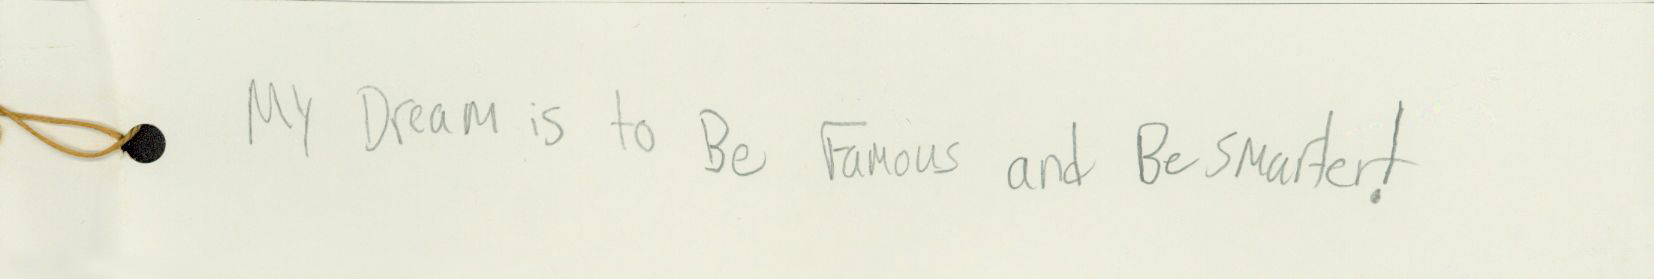 My Dream is to Be Famous and Be smarter!